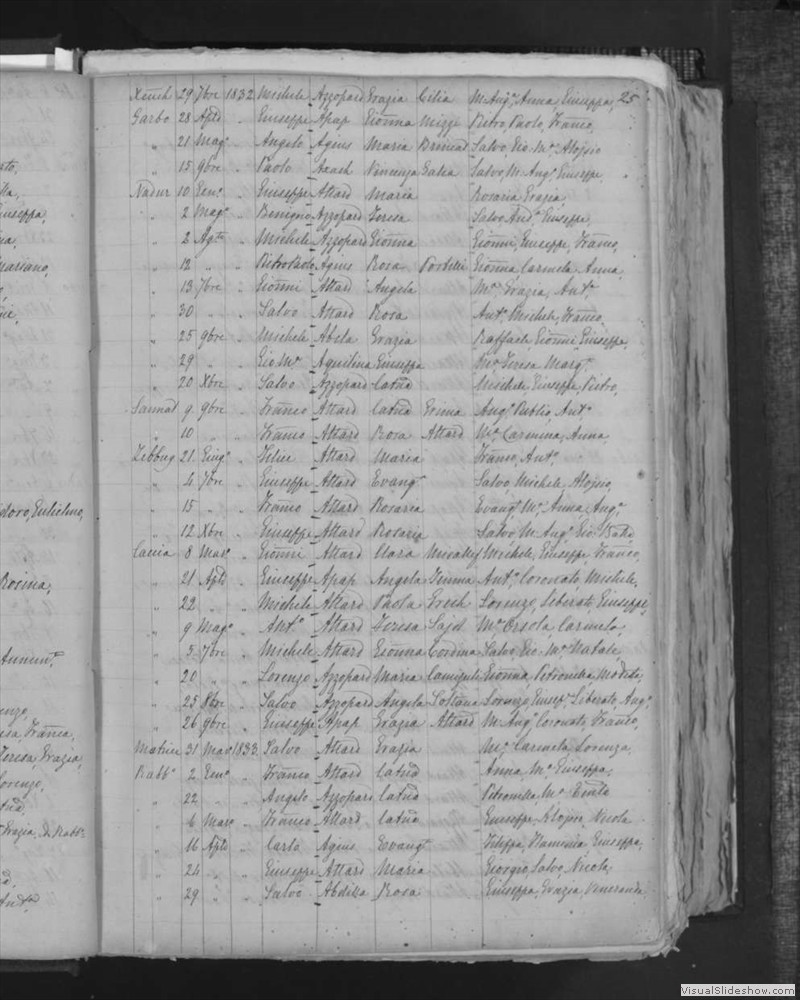 Xeuch 29 7bre 1832 Michele Azzopard Grazia Cilia M. Angª Anna, Giuseppa, 25
Garbo 28 Aple " Giuseppe Apap Gionna Mizzi Pietro Paolo, Franco,
" 21 Magº " Angelo Agius Maria Salvo, Gio Mª Aloysio
" 15 9bre " Paolo Salvo, M. Angº Giuseppe
Nadur 10 Genº " Giuseppe Attard Maria Rosaria Grazia,
" 2 Magº " Benigno Azzopard Teresa Salvo And.ª Giuseppe,
" 2 Agto " Michele Azzopard Gionna Gionni, Giuseppe, Franco,
" 12 " " Pietro Paolo Agius Rosa Portelli Gionna Carmela Anna,
" 13 7bre " Gionni Attard Angela Mª, Grazia, Antª
" 30 " " Salvo Attard Rosa Antº Michele, Franco,
" 25 9bre " Michele Abela Grazia Raffaele, Gionni, Giuseppe,
" 29 " " Gio Mª Aquilina Giuseppa Mª Teresa Margª
" 20 Xbre " Salvo Azzopard Catña Michele, Giuseppe, Pietro,
Sannat 9 9bre " Franco Attard Catña Grima Angº Publio, Antº
" 10 " " Franco Attard Rosa Attard Mª Carmina, Anna,
Zebbug 21 Giugº " Felice Attard Maria Franco, Antº,
" 4 7bre " Giuseppe Attard Evangª Salvo, Michele, Aloysio,
" 15 " " Franco Attard Rosaria Evangª Mª, Anna, Angª,
" 12 Xbre " Giuseppe Attard Rosaria Salvo, M. Angº, Gio
Caccia 8 Marº " Gionni Attard Clara Micallef Michele, Giuseppe, Franco,
" 21 Aple " Giuseppe Apap Angela Antº, Coronato, Michele,
" 22 " " Michele Attard Paola Grech Lorenzo, Liberato, Giuseppe,
" 9 Magº " Antº Attard Teresa Mª Orsola, Carmela,
" 5 7bre " Michele Attard Gionna Cordina Salvo, Gio Mª Natale
" 20 " " Lorenzo Azzopard Maria Camiguli Gionna, Petronilla, Modesta,
" 25 8bre " Salvo Azzopard Angela Soltana Lorenzo, Giusepe Liberato, Angº,
" 26 9bre " Giuseppe Apap Grazia Attard M. Angº Coronato, Franco,
Matrice 31 Marº 1833. Salvo Attard Grazia Mª, Carmela, Lorenza,
Rabbº 2 Genº " Franco Attard Catña Anna, Mª Giuseppa,
" 22 " " Angelo Azzopard Catña Petronilla, Mª
" 6 Marº " Franco Attard Catña Giuseppe, Aloysio, Nicola
" 16 Aple " Carlo Agius Evangª Filippa, Flaminia, Giuseppa,
" 24 " " Giuseppe Attard Maria Giorgio, Salvo, Nicola,
" 29 " " Salvo Abdilla Rosa Giuseppa, Grazia, Veneranda
VisualSlideshow.com